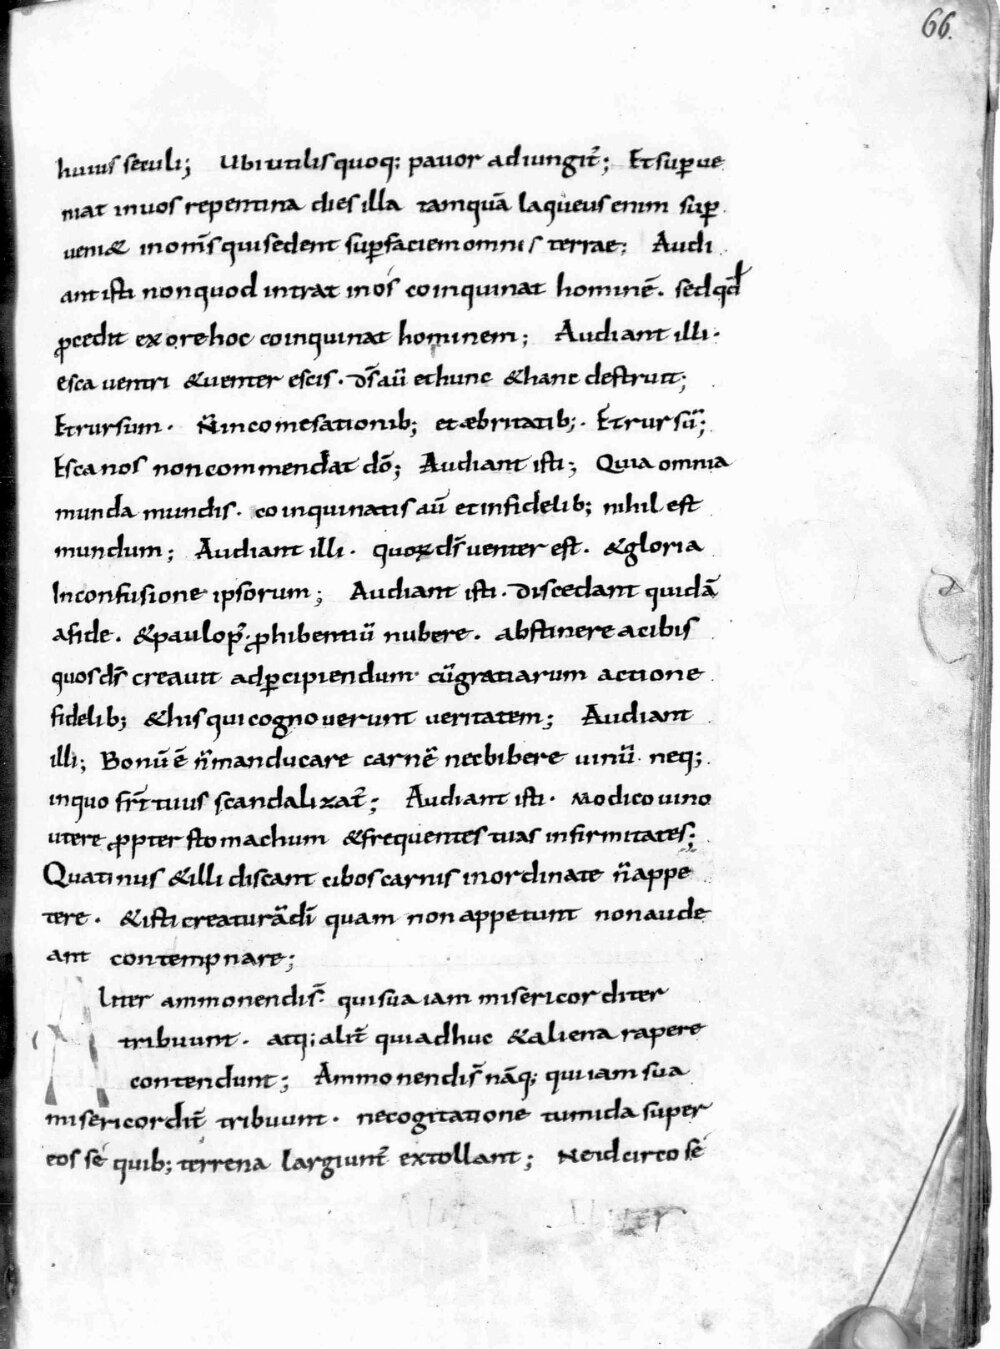 66.
huius seculi; Ubi utilis quoq: pauor adiungit̃; Et sup̱ue
niat in uos repentina dies illa tamquā laqueus enim sup̱
ueni& in om̄s qui sedent sup̱ faciem omnis terrae; Audi
ant isti non quod intrat in os coinquinat hominē. sed qđ
p̱cedit ex ore hoc coinquinat hominem; Audiant illi.
esca uentri & uenter escis. d̄s aū et hunc & hanc destruit;
Et rursum. N̄ in comesationib; et æbritatib;. Et rursū;
Esca nos non commendat dō; Audiant isti; Quia omnia
munda mundis. coinquinatis aū et infidelib; nihil est
mundum; Audiant illi. quoꝝ d̄s uenter est. & gloria
In confusione ipsorum; Audiant isti. discedant quidā
a fide. & paulo p̄. ꝓhibentiū nubere. abstinere a cibis
quos d̄s creauit ad p̱cipiendum cū gratiarum actione
fidelib; & his qui cognouerunt ueritatem; Audiant
illi; Bonū ē n̄ manducare carnē nec bibere uinū neq;
in quo fr̄ tuus scandalizat̃; Audiant isti. modico uino
utere ꝓpter stomachum & frequentes tuas infirmitates;
Quatinus & illi discant cibos carnis inordinate n̄ appe
tere. & isti creaturā dī quam non appetunt non aude
ant contempnare;
Aliter ammonendis̄ qui sua iam misericorditer
tribuunt. atq; alit̃ qui adhuc & aliena rapere
contendunt; Ammonendis̄ nāq; qui iam sua
misericordit̃ tribuunt. ne cogitatione tumida super
eos sé quib; terrena largiunt̃ extollant; Ne idcirco sé